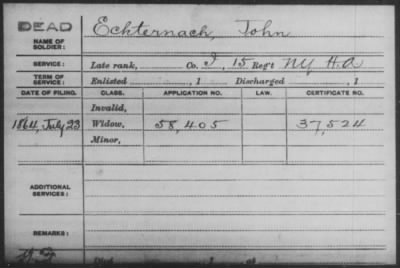 DEAD
NAME OF SOLDIER: Echternach, John
SERVICE: Late rank, Co. I, 15 Reg't NY H.A
TERM OF SERVICE: Enlisted , 1 Discharged , 1
DATE OF FILING. CLASS. APPLICATION NO. LAW. CERTIFICATE NO.
Invalid,
1864, July 23 Widow, 58,405 37,524
Minor,
ADDITIONAL SERVICES:
REMARKS: